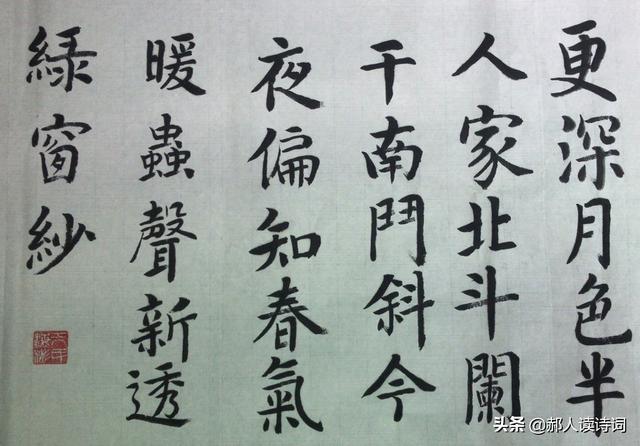 更深月色半
人家北斗闌
干南鬥斜今
夜偏知春氣
暖蟲聲新透
緑窗紗
头条 @郝人读诗词